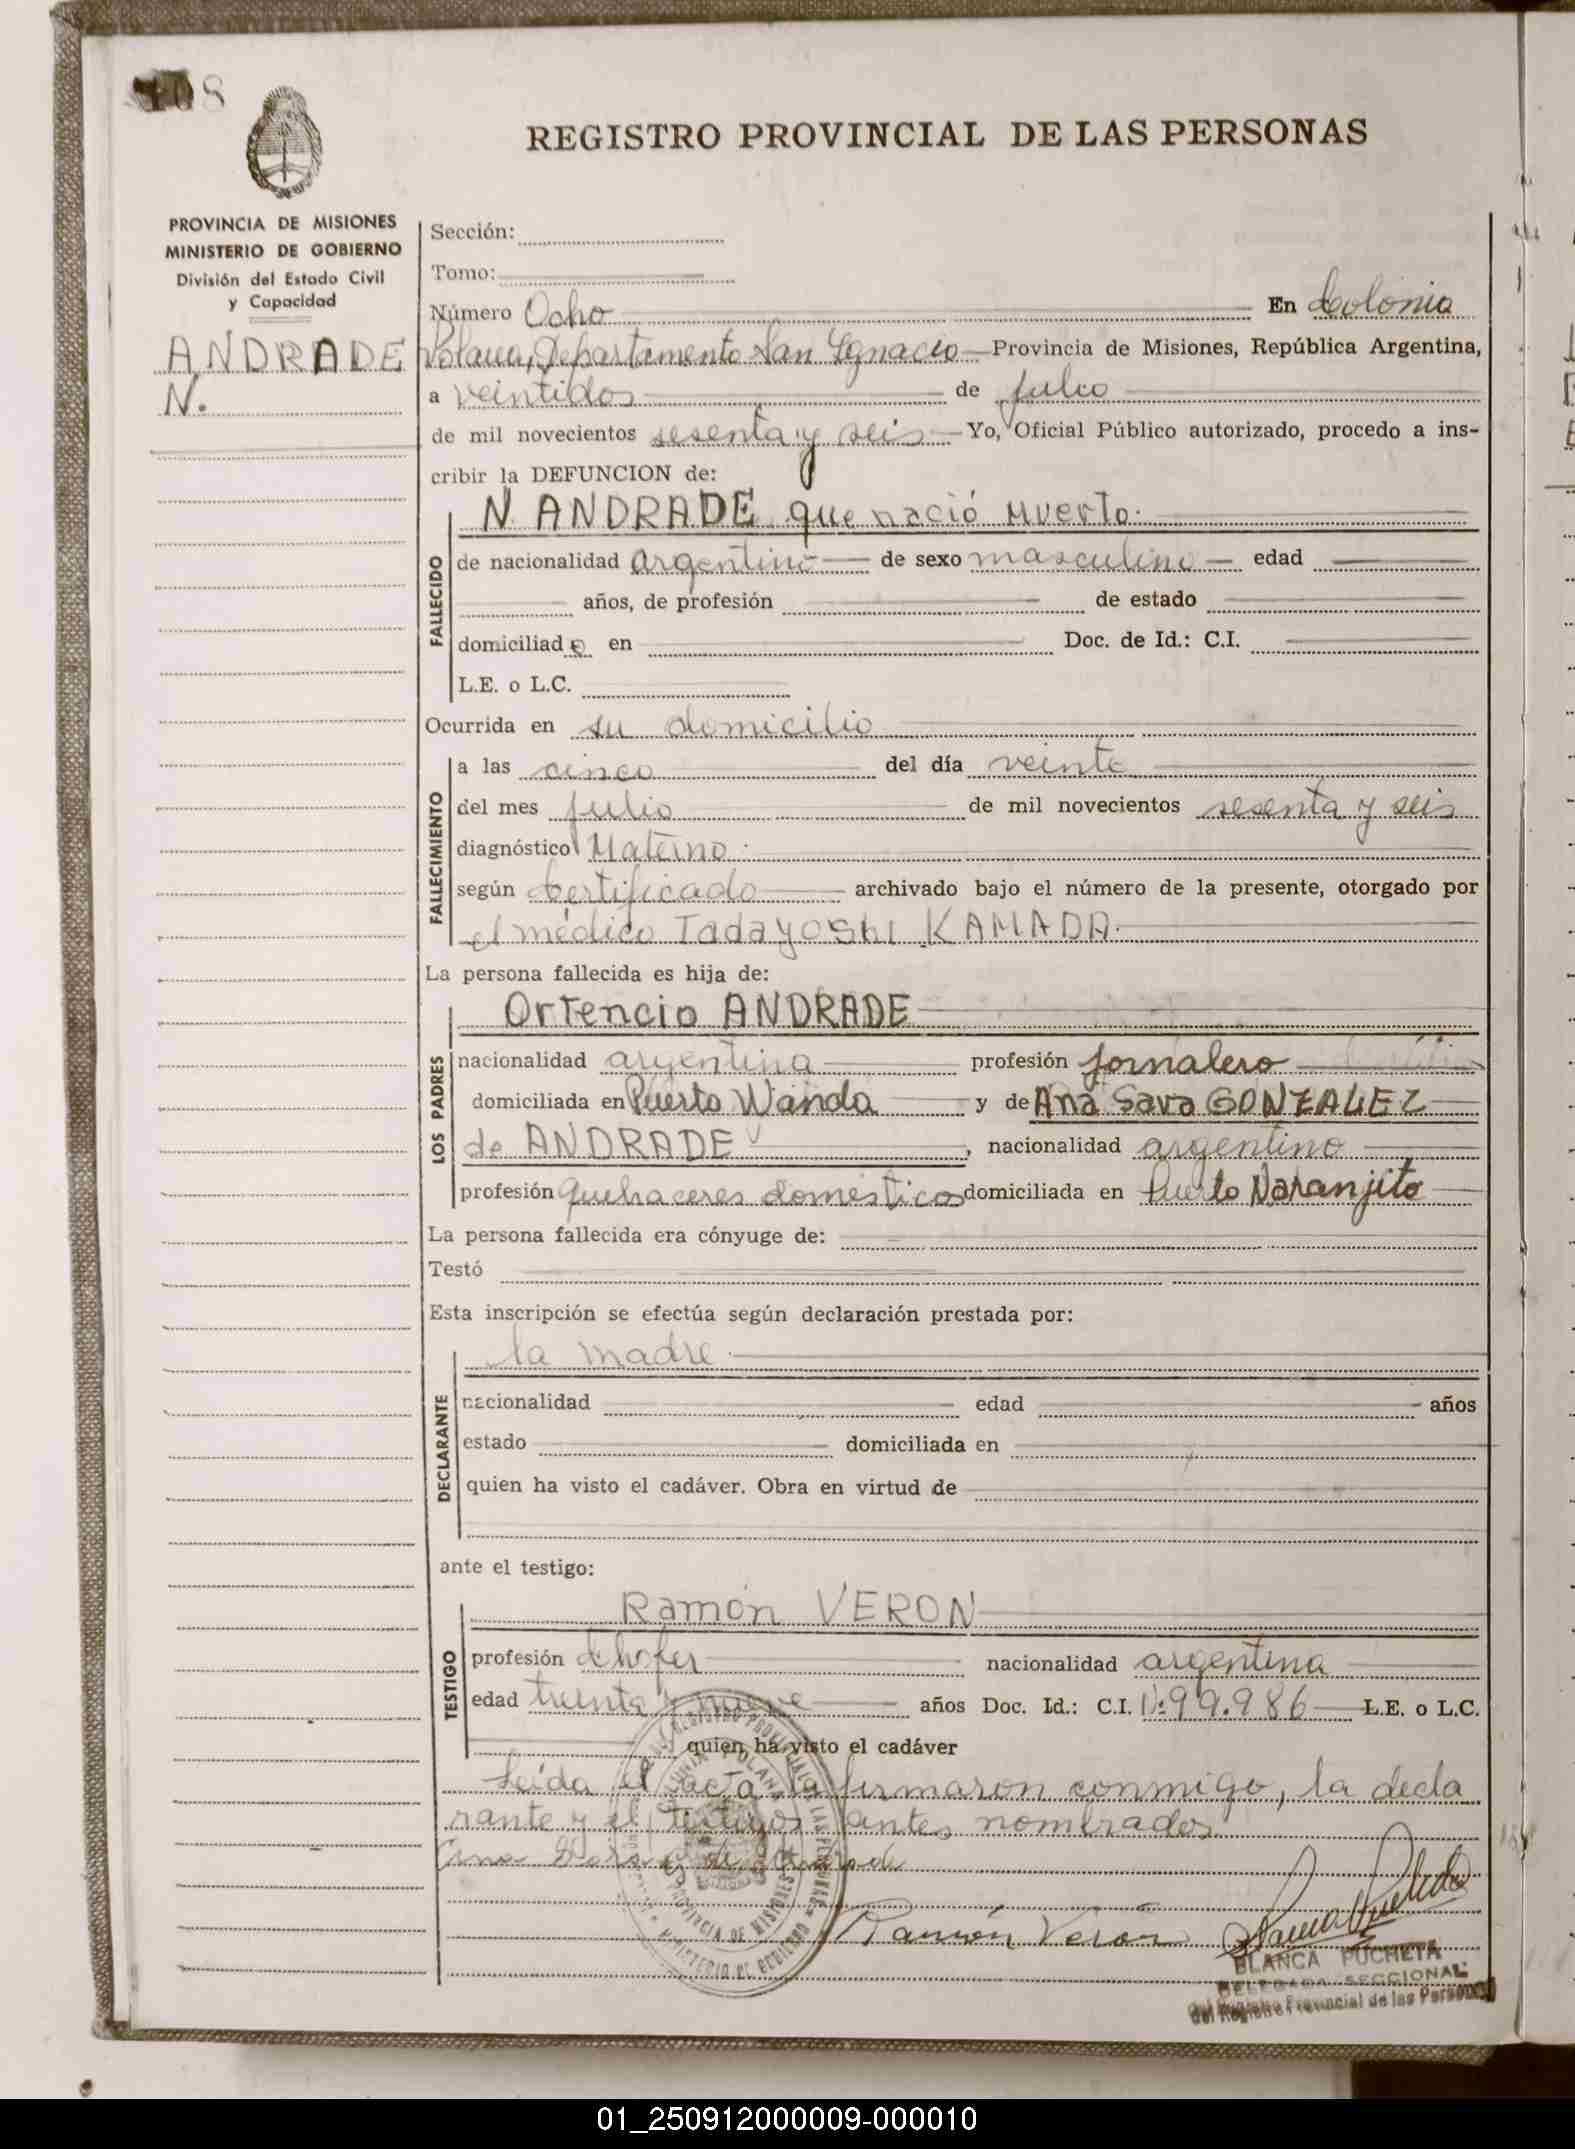 08
REGISTRO PROVINCIAL DE LAS PERSONAS
PROVINCIA DE MISIONES
MINISTERIO DE GOBIERNO
División del Estado Civil
y Capacidad
ANDRADE
N.
Sección:
Tomo:
Número Ocho En Colonia
Polana, Departamento San Ignacio Provincia de Misiones, República Argentina,
a veintidos de julio
de mil novecientos sesenta y seis Yo, Oficial Público autorizado, procedo a ins-
cribir la DEFUNCION de:
N. ANDRADE que nació muerto.
FALLECIDO
de nacionalidad argentino de sexo masculino edad
años, de profesión de estado
domiciliado en Doc. de Id.: C.I.
L.E. o L.C.
Ocurrida en su domicilio
FALLECIMIENTO
a las cinco del día veinte
del mes julio de mil novecientos sesenta y seis
diagnóstico Materno.
según Certificado archivado bajo el número de la presente, otorgado por
el médico Tadayoshi KAMADA.
La persona fallecida es hija de:
LOS PADRES
Ortencio ANDRADE
nacionalidad argentina profesión jornalero
domiciliada en Puerto Wanda y de Ana Sara GONZALEZ
de ANDRADE, nacionalidad argentino
profesión quehaceres domésticos domiciliada en Puerto Naranjito
La persona fallecida era cónyuge de:
Testó
Esta inscripción se efectúa según declaración prestada por:
DECLARANTE
la madre.
nacionalidad edad años
estado domiciliada en
quien ha visto el cadáver. Obra en virtud de
ante el testigo:
TESTIGO
Ramón VERON
profesión chofer nacionalidad argentina
edad treinta y nueve años Doc. Id.: C.I. Nº 99.986 L.E. o L.C.
quien ha visto el cadáver
Leída el acta la firmaron conmigo, la decla
rante y el testigos antes nombrados
Ana Sara de Andrade
Ramón Verón
BLANCA PUCHETA
DELEGADA SECCIONAL
del Registro Provincial de las Personas
01_250912000009-000010